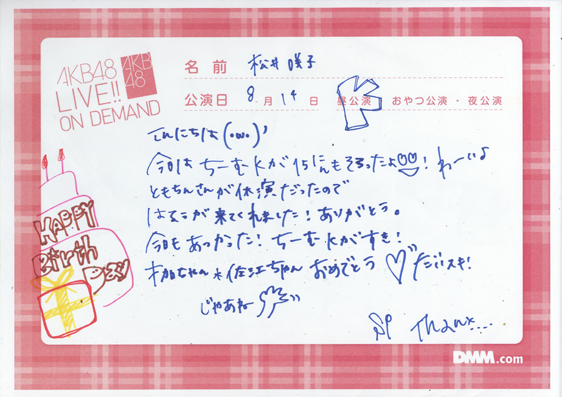 AKB48
LIVE!!
ON DEMAND
AKB
48
名前 松井咲子
公演日 8月14日 昼公演・おやつ公演・夜公演
こんにちは(・ω・)
今日はちーむKが15にんもそろったよ!わーいよ
ともちんさんが休演だったので
はるぅが来てくれました!ありがとう。
今日もあつかった!ちーむKがすき!
ちゃん 佐江ちゃん おめでとう だいスキ!
じゃあねー
Thanx....
HAPPY
Birth
Day
DMM.com